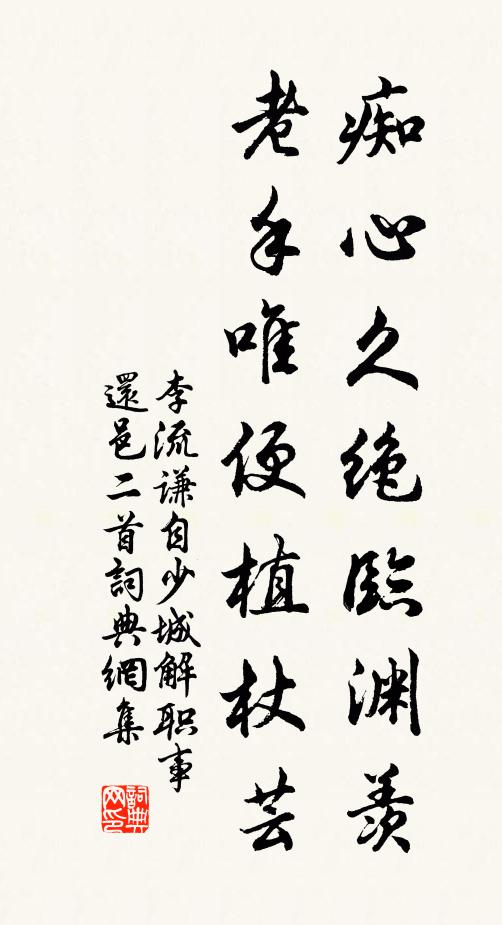 痴心久绝臨渊羡
老手唯便植杖芸
李流谦自少城解职事
還邑二首詞典網集
詞典网印